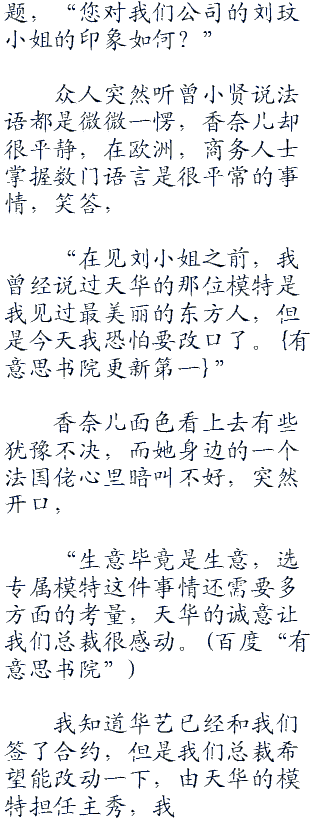 题，“您对我们公司的刘玟
小姐的印象如何？”
众人突然听曾小贤说法
语都是微微一愣，香奈儿却
很平静，在欧洲，商务人士
掌握数门语言是很平常的事
情，笑答，
“在见刘小姐之前，我
曾经说过天华的那位模特是
我见过最美丽的东方人，但
是今天我恐怕要改口了。{有
意思书院更新第一}”
香奈儿面色看上去有些
犹豫不决，而她身边的一个
法国佬心里暗叫不好，突然
开口，
“生意毕竟是生意，选
专属模特这件事情还需要多
方面的考量，天华的诚意让
我们总裁很感动。(百度“有
意思书院”)
我知道华艺已经和我们
签了合约，但是我们总裁希
望能改动一下，由天华的模
特担任主秀，我